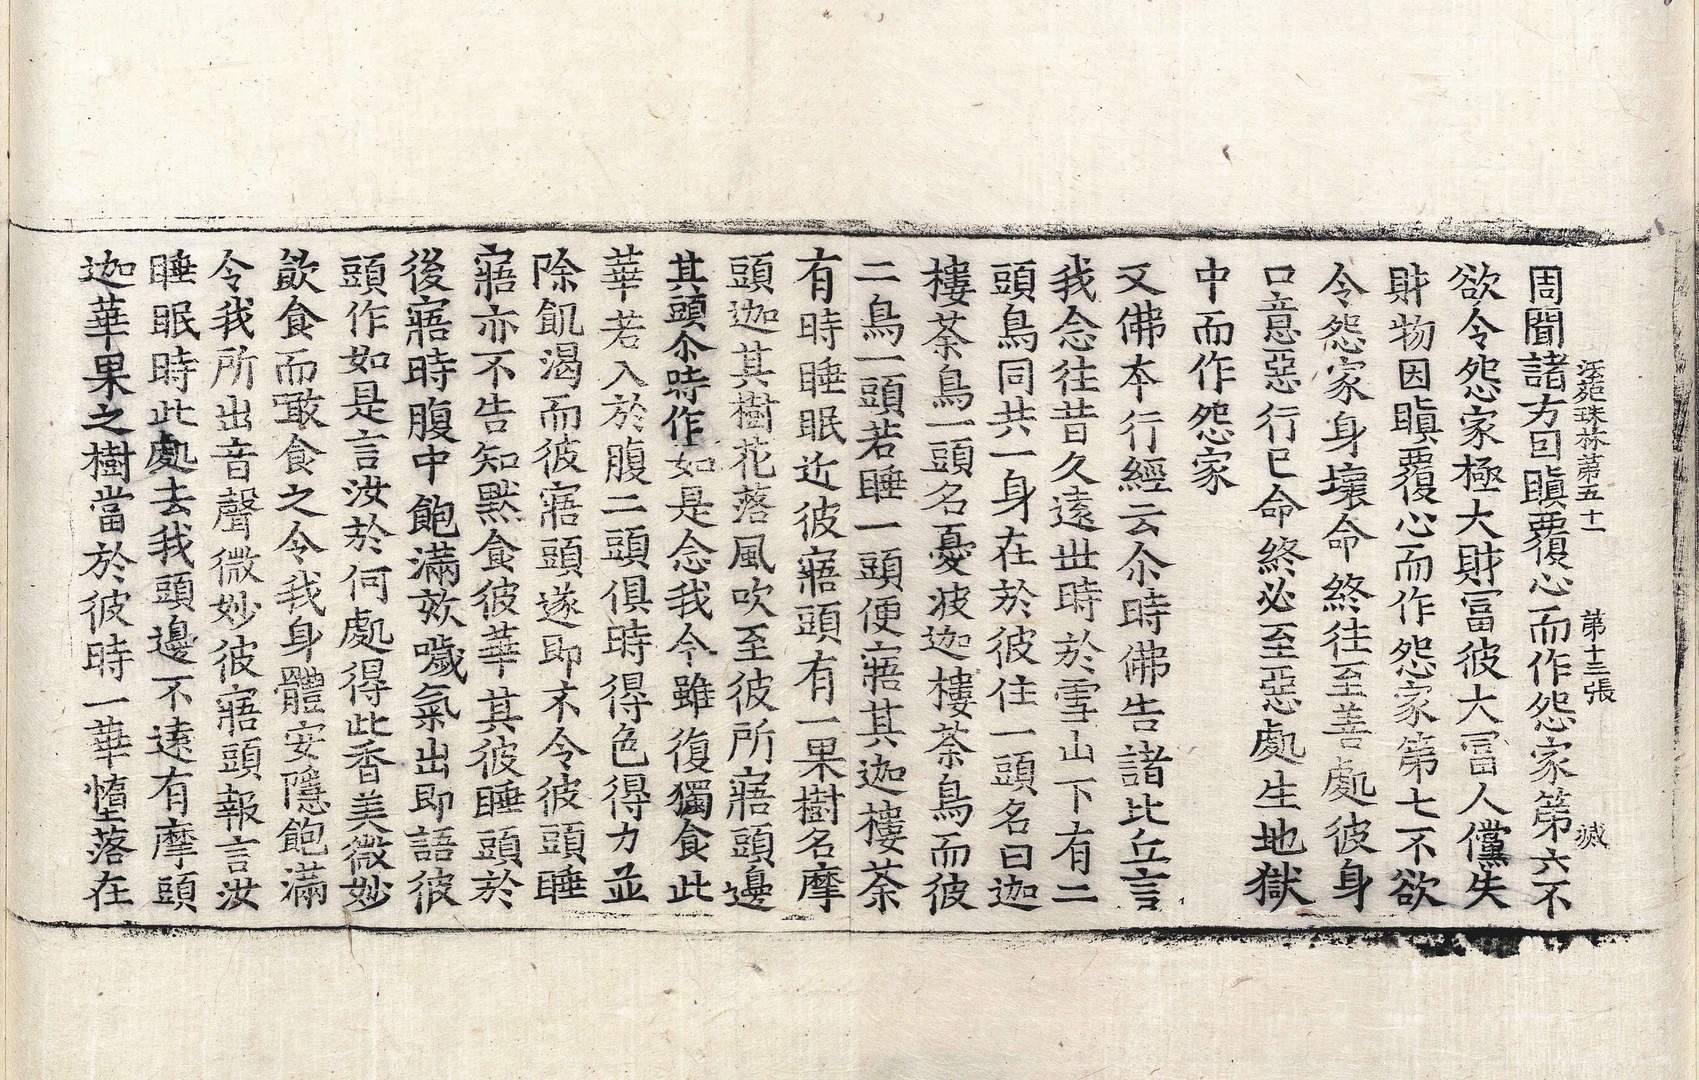 法苑珠林第五十一　第十三張　滅
周聞諸方因瞋覆心而作怨家第六不
欲令怨家極大財冨彼大冨人儻失
財物因瞋覆心而作怨家第七不欲
令怨家身壞命終往至善處彼身
口意惡行已命終必至惡處生地獄
中而作怨家
又佛本行經云尒時佛告諸比丘言
我念往昔久遠世時於雪山下有二
頭鳥同共一身在於彼住一頭名曰迦
樓茶鳥一頭名憂波迦樓茶鳥而彼
二鳥一頭若睡一頭便寤其迦樓茶
有時睡眠近彼寤頭有一果樹名摩
頭迦其樹花落風吹至彼所寤頭邊
其頭尒時作如是念我今雖復獨食此
華若入於腹二頭俱時得色得力並
除飢渴而彼寤頭遂即不令彼頭睡
寤亦不告知默食彼華其彼睡頭於
後寤時腹中飽滿欬噦氣出即語彼
頭作如是言汝於何處得此香美微妙
飲食而噉食之令我身體安隱飽滿
令我所出音聲微妙彼寤頭報言汝
睡眠時此處去我頭邊不遠有摩頭
迦華果之樹當於彼時一華墮落在